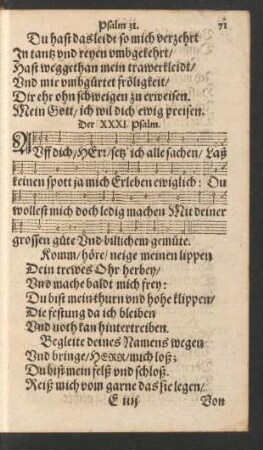 Psalm 31. 71
Du hast das leidt so mich verzehrt
In tantz vnd reyen vmbgekehrt/
Hast weggethan mein trawerkleidt/
Vnd mir vmbgürtet fröligkeit/
Dir ehr ohn schweigen zu erweisen.
Mein Gott/ ich wil dich ewig preisen.
Der XXXI. Psalm.
AVff dich/ HErr/ setz ich alle sachen/ Laß
keinen spott ja mich Erleben ewiglich: Du
wollest mich doch ledig machen Mit deiner
grossen güte Vnd billichem gemüte.
Komm/ höre/ neige meinen lippen
Dein trewes Ohr herbey/
Vnd mache baldt mich frey:
Du bist mein thurn vnd hohe klippen/
Die festung da ich bleiben
Vnd noth kan hintertreiben.
Begleite deines Namens wegen
Vnd bringe/ HERR/ mich loß;
Du bist mein felß vnd schloß.
Reiß mich vom garne das sie legen/
E iiij Von